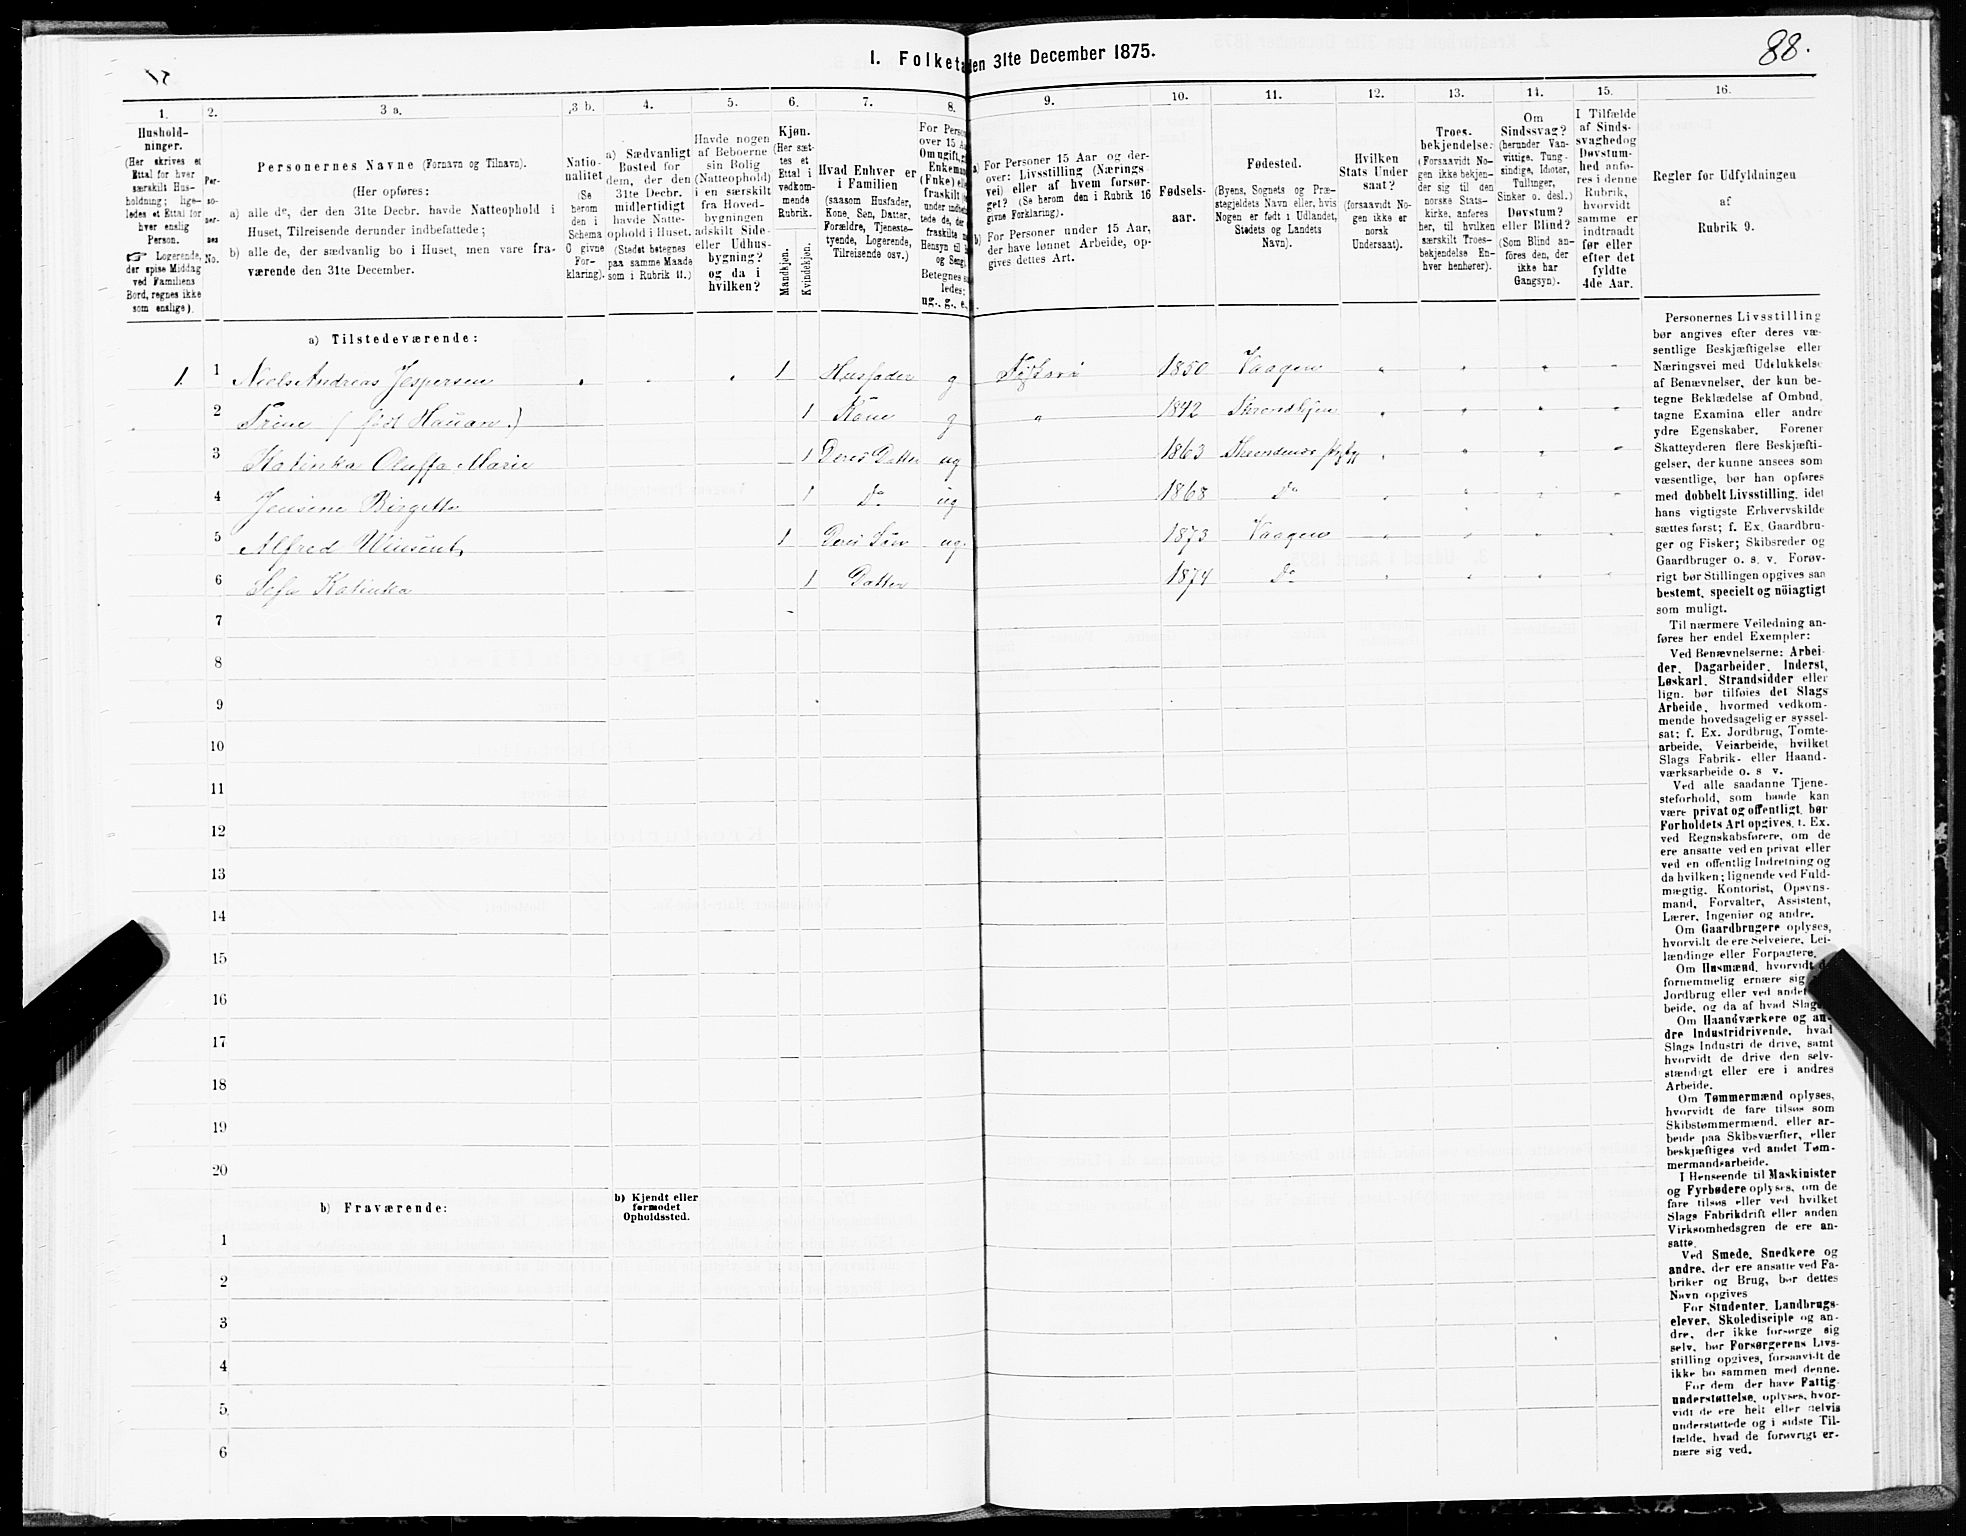 I. Folketæ
en 31te December 1875.
88.
1.
2.
3 a.
3 b.
4.
5.
6.
7.
8.
9.
10.
11.
12.
13.
14.
15.
16.
Hushold-
ninger.
(Her skrives et
Ettal for hver
særskilt Hus-
holdning; lige-
ledes et Ettal for
hver enslig
Person.
☞ Logerende,
der spise Middag
ved Familiens
Bord, regnes ikke
som enslige).
Per-
so-
ner-
nes
No.
Personernes Navne (Fornavn og Tilnavn).
(Her opføres:
a) alle de, der den 31te Decbr. havde Natteophold i
Huset, Tilreisende derunder indbefattede;
b) alle de, der sædvanlig bo i Huset, men vare fra-
værende den 31te December.
Natio-
nalitet
(Se
herom
den i
Schema
C givne
For-
klaring).
a) Sædvanligt
Bosted for
dem, der den
31te Decbr.
midlertidigt
havde Natte-
ophold i Huset.
(Stedet betegnes
paa samme Maade
som i Rubrik 11.)
Havde nogen
af Beboerne
sin Bolig
(Natteophold)
i en særskilt
fra Hoved-
bygningen
adskilt Side-
eller Udhus-
bygning?
og da i
hvilken?
Kjøn.
(Her sæt-
tes et
Ettal i
vedkom-
mende
Rubrik.
Mandkjøn.
Kvindekjøn.
Hvad Enhver er
i Familien
(saasom Husfader,
Kone, Søn, Datter,
Forældre, Tjeneste-
tyende, Logerende,
Tilreisende osv.)
For Person
over 15 Aa
Om ugift, gi
Enkeman
(Enke) elle
fraskilt
under indbe
tede de, der
fraskilte
Hensyn til
og Seng
Betegnes s
ledes:
ug., g., e.,
a) For Personer 15 Aar og der-
over: Livsstilling (Nærings-
vei) eller af hvem forsør-
get? (Se herom den i Rubrik 16
givne Forklaring).
b) For Personer under 15 Aar,
der have lønnet Arbeide, op-
gives dettes Art.
Fødsels-
aar.
Fødested.
(Byens, Sognets og Præ-
stegjeldets Navn eller, hvis
Nogen er født i Udlandet,
Stedets og Landets
Navn).
Hvilken
Stats Under
saat?
(forsaavidt No-
gen ikke er
norsk
Undersaat).
Troes-
bekjendelse.
(Forsaavidt No-
gen ikke bekjen-
der sig til den
norske Stats-
kirke, anføres
her, til hvilken
særskilt Troes-
bekjendelse En-
hver henhører).
Om
Sindssvag?
(herunder Van-
vittige, Tung-
sindige, Idioter,
Tullinger,
Sinker o. desl.)
Døvstum?
eller Blind?
(Som Blind an-
føres den, der
ikke har
Gangsyn).
I Tilfælde
af Sinds-
svaghed og
Døvstum-
hed anfø-
res i denne
Rubrik,
hvorvidt
samme er
indtraadt
før eller
efter det
fyldte
4de Aar.
Regler for Udfyldningen
af
Rubrik 9.
a) Tilstedeværende:
1. 1 Niels Andreas Jespersen 1 Husfader g 1850 Vaagen
2 Trine (född Hauan.) 1 Kone g " 1842
3 Katinka Oluffa Marie 1 Deres Datter ug 1863
4 Jensine Birgitte 1 Do ug 1868 Do
5 Alfred Winsent 1 Deres Søn ug. 1873 Vaagen
6 Katinka 1 Datter 1874 Do
7
8
9
10
11
12
13
14
15
16
17
18
19
20
b) Fraværende:
b) Kjendt eller
formodet
Opholdssted.
1
2
3
4
5
6
Personernes Livsstilling
bør angives efter deres væ-
sentlige Beskjæftigelse eller
Næringsvei med Udelukkelse
af Benævnelser, der kun be-
tegne Beklædelse af Ombud,
tagne Examina eller andre
ydre Egenskaber. Forener
Skatteyderen flere Beskjæfti-
gelser, der kunne ansees som
væsentlige, bør han opføres
med dobbelt Livsstilling, idet
hans vigtigste Erhvervskilde
sættes først; f. Ex. Gaardbru-
ger og Fisker; Skibsreder og
Gaardbruger o. s. v. Forøv-
rigt bør Stillingen opgives saa
bestemt, specielt og nöiagtigt
som muligt.
Til nærmere Veiledning an-
føres her endel Exempler:
Ved Benævnelserne: Arbei-
der, Dagarbeider, Inderst,
Løskarl, Strandsidder eller
lign. bør tilføies det Slags
Arbeide, hvormed vedkom-
mende hovedsagelig er syssel-
sat; f. Ex. Jordbrug, Tomte-
arbeide, Veiarbeide, hvilket
Slags Fabrik- eller Haand-
værksarbeide o. s v.
Ved alle saadanne Tjene-
steforhold, som baade kan
være privat og offentligt, bør
Forholdets Art opgives, t. Ex.
ved Regnskabsførere, om de
ere ansatte ved en privat eller
ved en offentlig Indretning og
da hvilken; lignende ved Fuld-
mægtig, Kontorist, Opsyns-
mand, Forvalter, Assistent,
Lærer, Ingeniør og andre.
Om Gaardbrugere oplyses,
hvorvidt de ere Selveiere, Lei-
lændinge eller Forpagtere.
Om Husmænd, hvorvidt d
fornemmelig ernære sig
Jordbrug eller ved andet
beide, og da af hvad Slag
Om Haandværkere og an-
dre Industridrivende, hvad
Slags Industri de drive, samt
hvorvidt de drive den selv-
stændigt eller ere i andres
Arbeide.
Om Tømmermænd oplyses,
hvorvidt de fare tilsøs som
Skibstømmermænd, eller ar-
beide paa Skibsværfter, eller
beskjæftiges ved andet Tøm-
mermandsarbeide.
I Henseende til Maskinister
og Fyrbødere oplyses, om de
fare tilsøs eller ved hvilket
Slags Fabrikdrift eller anden
Virksomhedsgren de ere an-
satte.
Ved Smede, Snedkere og
andre, der ere ansatte ved Fa-
briker og Brug, bør dettes
Navn opgives
For Studenter, Landbrugs-
elever, Skoledisciple og an-
dre, der ikke forsørge sig
selv, bør Forsørgerens Livs-
stilling opgives, forsaavidt de
ikke bo sammen med denne.
For dem der have Fattig-
understøttelse, oplyses, hvor-
vidt de ere helt eller delvis
understøttede og i sidste Til-
fælde, hvad de forøvrigt er-
nære sig ved.